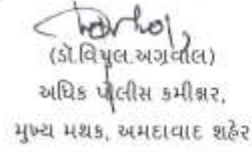 (ડૉ.વિપુલ અગ્રવાલ)
અધિક પોલીસ કમીશ્નર,
મુખ્ય મથક, અમદાવાદ શહેર